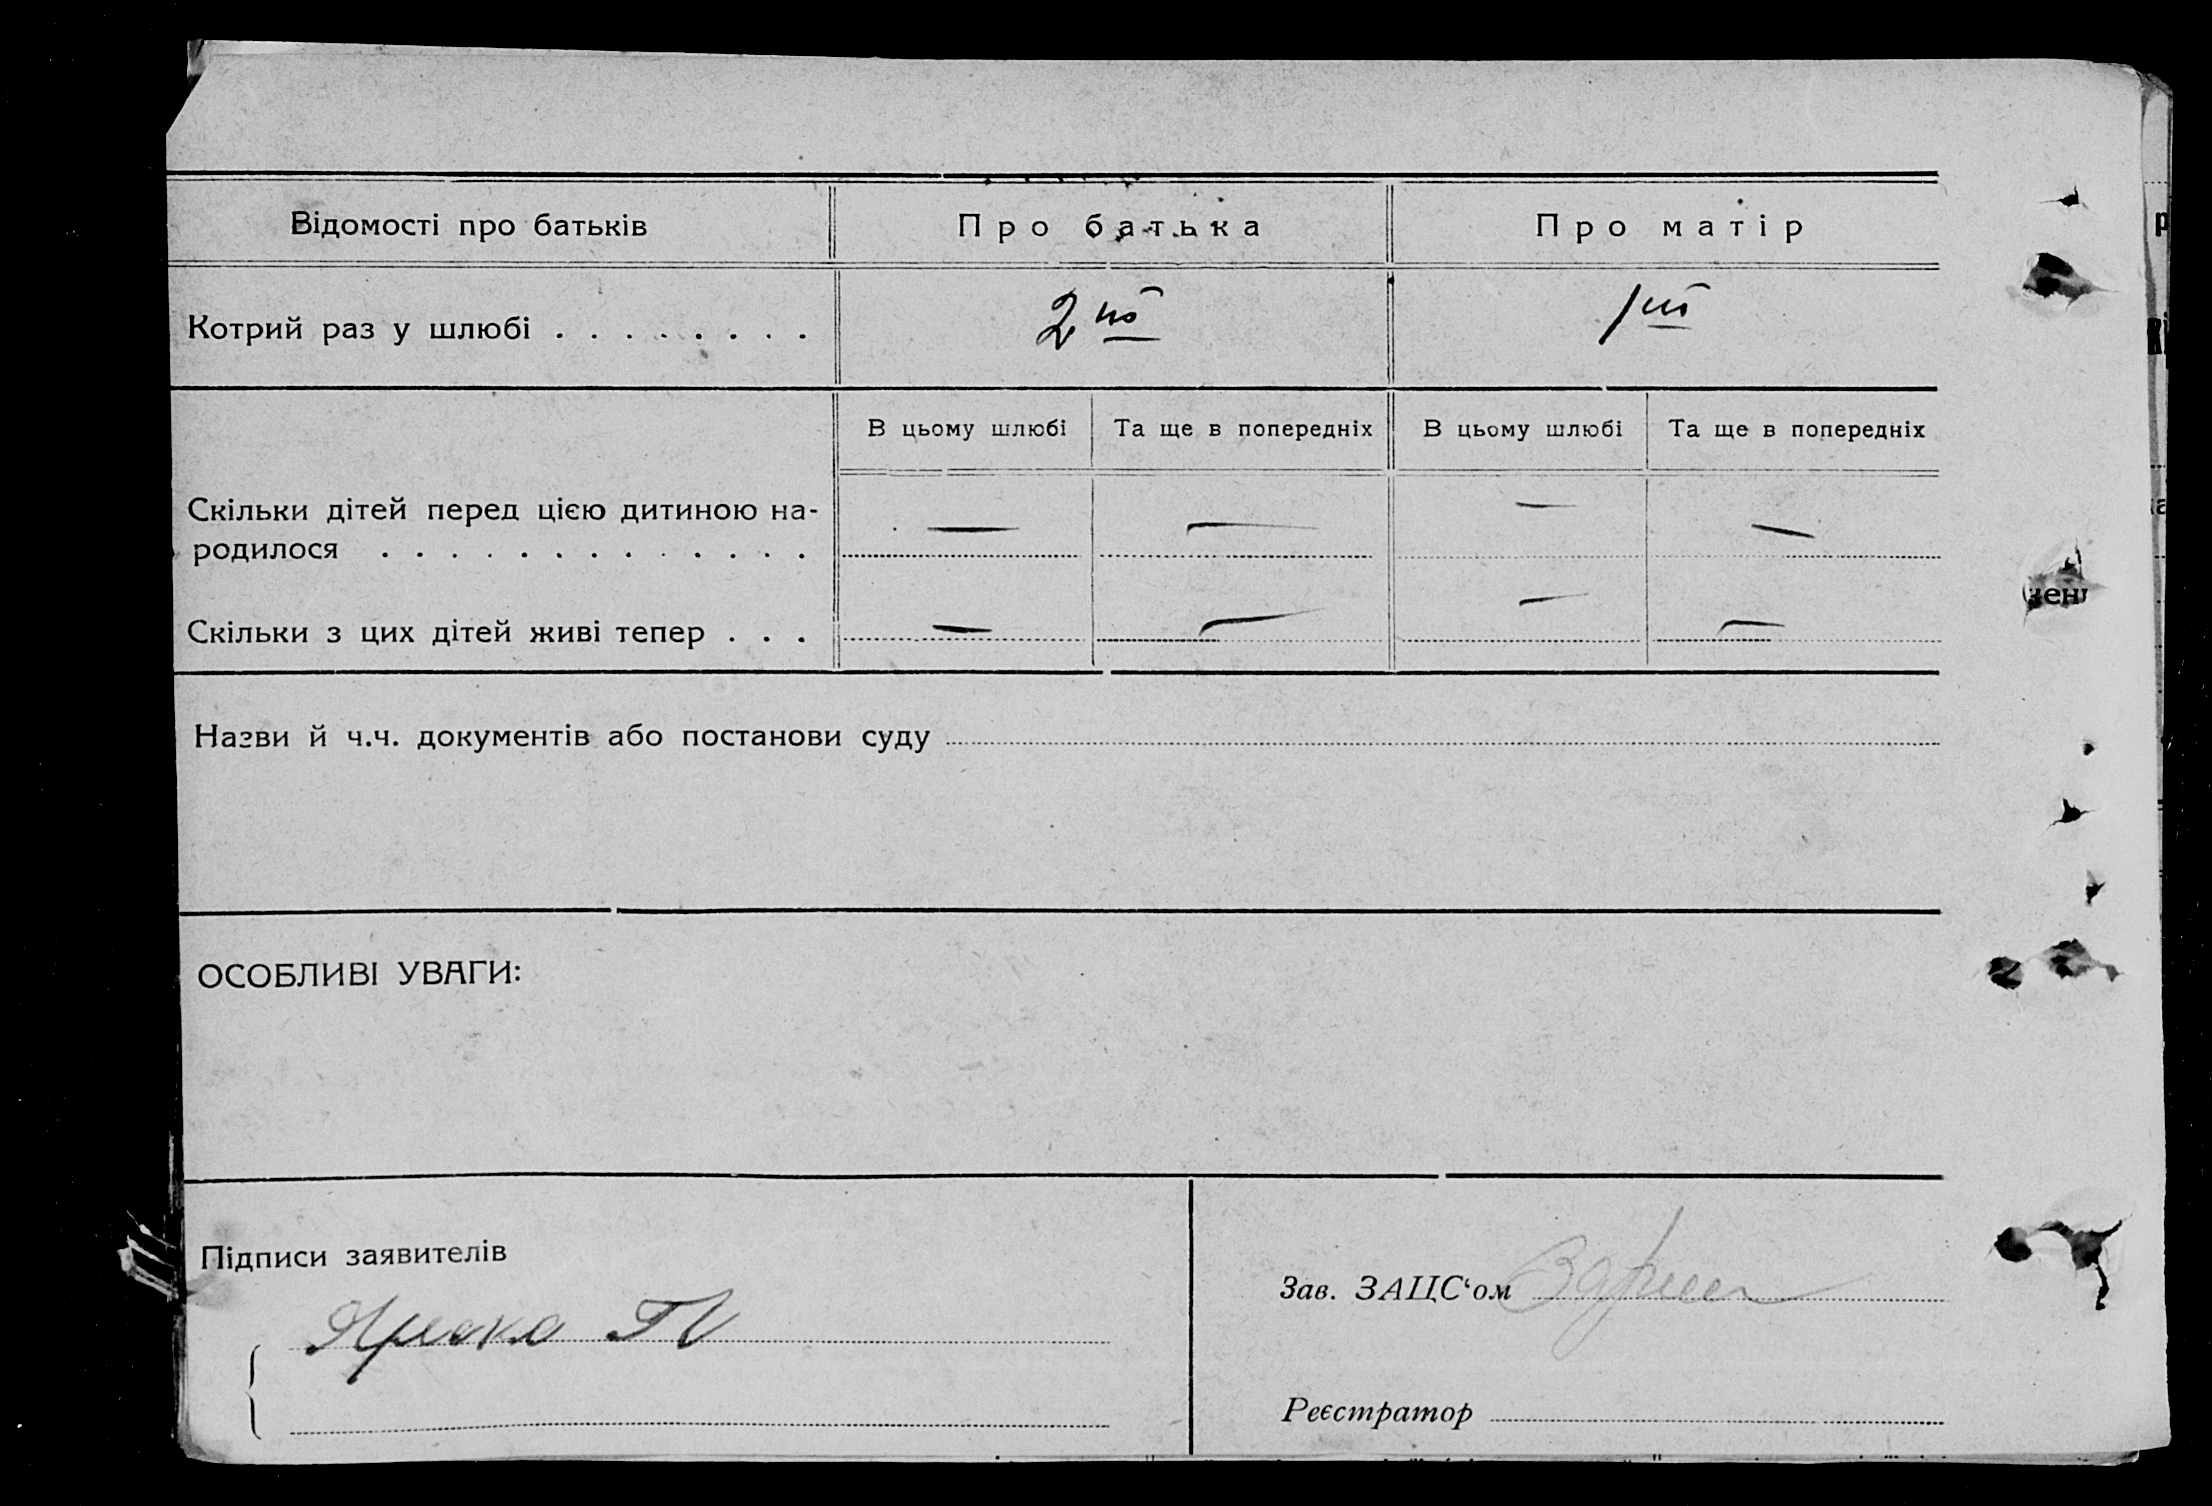 Відомості про батьків Про батька Про матір
Котрий раз у шлюбі . . . . . . . . 2 ий 1 ий
В цьому шлюбі Та ще в попередніх В цьому шлюбі Та ще в попередніх
Скільки дітей перед цією дитиною на-
родилося . . . . . . . . . . . . . — — — —
Скільки з цих дітей живі тепер . . . — — — —
Назви й ч.ч. документів або постанови суду
ОСОБЛИВІ УВАГИ:
Підписи заявителів
Зав. ЗАЦС‘ом
Реєстратор